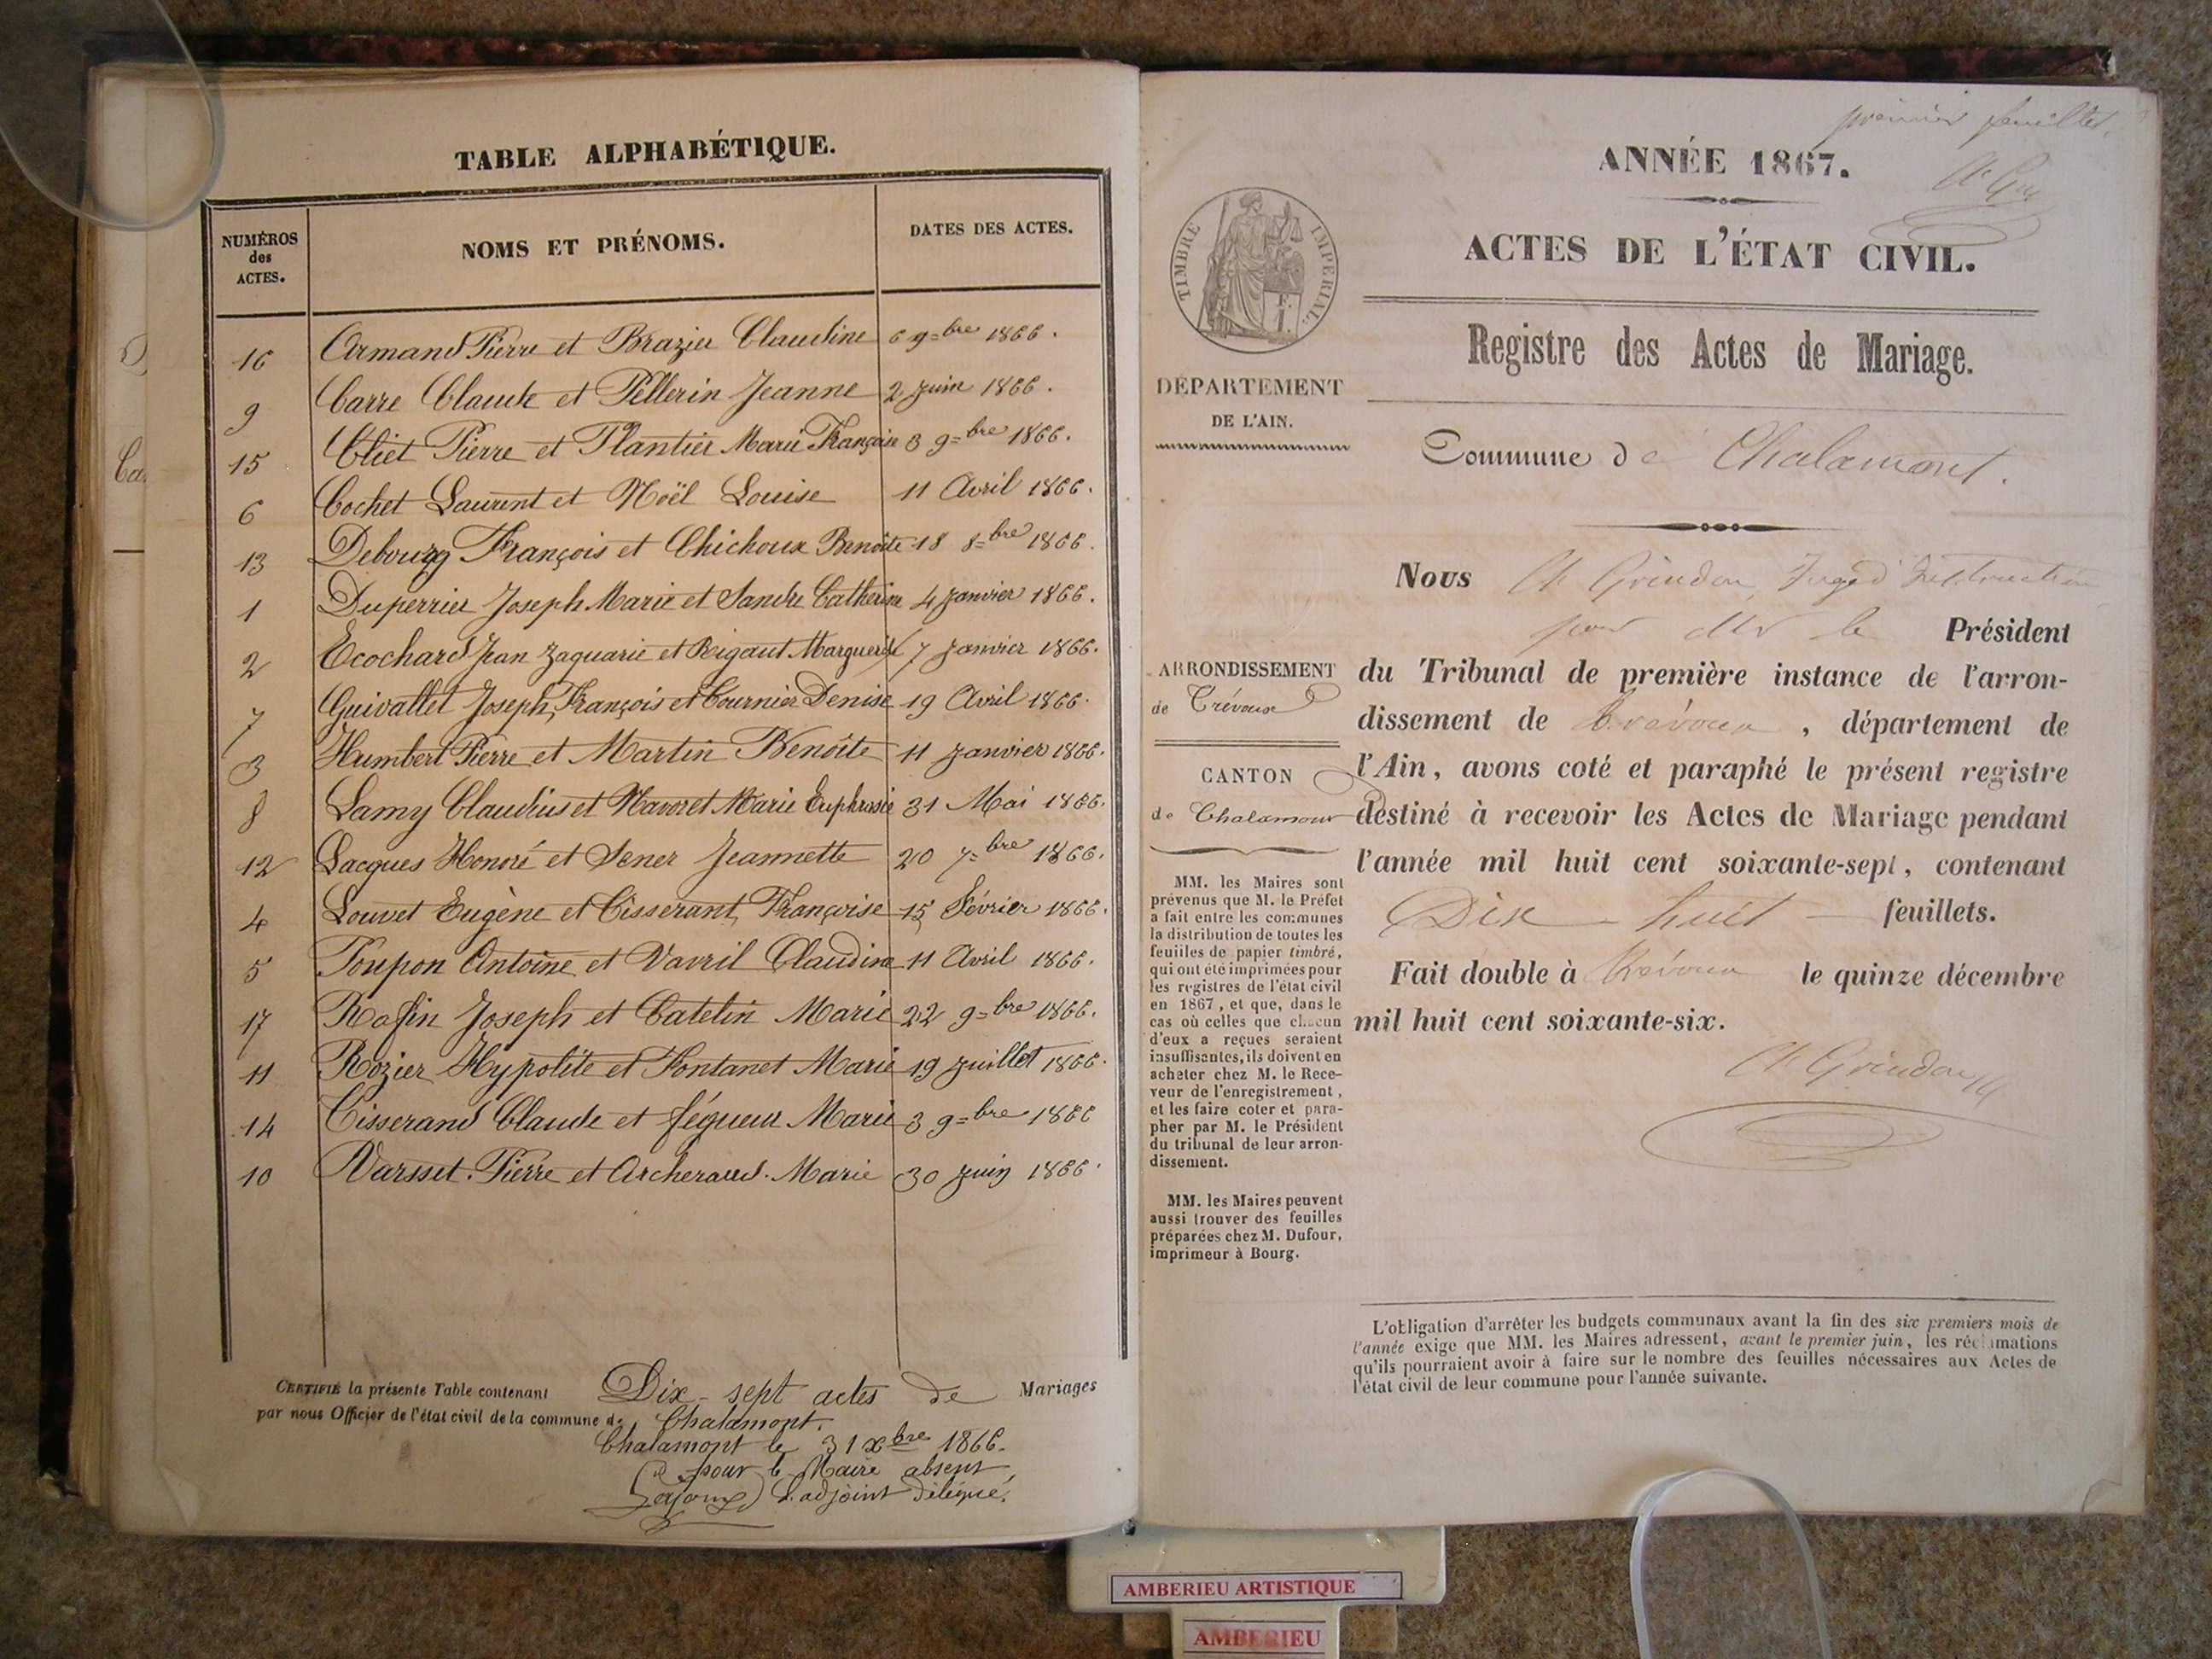 TABLE ALPHABÉTIQUE.
NUMÉROS des ACTES. NOMS ET PRÉNOMS. DATES DES ACTES.
16 Armand Pierre et Brazier Claudine 6 9=bre 1866.
9 Carre Claude et Pellerin Jeanne 2 Juin 1866.
15 Cliet Pierre et Plantier Marie Françoise 3 9=bre 1866.
6 Cochet Laurent et Noël Louise 11 Avril 1866.
13 Debourg François et Chichoux Benoite 18 8=bre 1866.
1 Duperrier Joseph Marie et Sandre Catherine 4 Janvier 1866.
2 Ecochard Jean Zaguarie et Rigaut Marguerite 7 Janvier 1866.
7 Guivallet Joseph, François et Cournier Denise 19 Avril 1866.
3 Humbert Pierre et Martin Benoîte 11 Janvier 1866.
8 Lamy Claudius et Navoret Marie Euphrasie 31 Mai 1866.
12 Lacques Honoré et Sener Jeannette 20 7=bre 1866.
4 Louvet Eugène et Tisserant, Françoise 15 Février 1866.
5 Poupon Antoine et Vavril Claudine 11 Avril 1866.
17 Rafin Joseph et Catelin Marie 22 9=bre 1866.
11 Rozier Hypolite et Fontanet Marie 19 Juillet 1866.
14 Tisserand Claude et Marie 3 9=bre 1866
10 Pierre et Archeraud Marie 30 Juin 1866.
CERTIFIÉ la présente Table contenant Dix-sept actes de Mariages
par nous Officier de l'état civil de la commune de Chalamont.
Chalamont le 31 xbre 1866.
pour le Maire absent
L'adjoint délégué.
premier feuillet.
ANNÉE 1867.
ACTES DE L'ÉTAT CIVIL.
TIMBRE IMPÉRIAL.
Registre des Actes de Mariage.
DÉPARTEMENT
DE L'AIN.
Commune de Chalamont.
Nous Ch Grindon, Juge d'Instruction
pour Mr le Président
ARRONDISSEMENT
de Trévoux
du Tribunal de première instance de l'arron-
dissement de Trévoux, département de
l'Ain, avons coté et paraphé le présent registre
destiné à recevoir les Actes de Mariage pendant
l'année mil huit cent soixante-sept, contenant
Dix-huit feuillets.
Fait double à Trévoux le quinze décembre
mil huit cent soixante-six.
Ch Grindon
CANTON
de Chalamont
MM. les Maires sont
prévenus que M. le Préfet
a fait entre les communes
la distribution de toutes les
feuilles de papier timbré,
qui ont été imprimées pour
les registres de l'état civil
en 1867, et que, dans le
cas où celles que chacun
d'eux a reçues seraient
insuffisantes, ils doivent en
acheter chez M. le Rece-
veur de l'enregistrement,
et les faire coter et para-
pher par M. le Président
du tribunal de leur arron-
dissement.
MM. les Maires peuvent
aussi trouver des feuilles
préparées chez M. Dufour,
imprimeur à Bourg.
L'obligation d'arrêter les budgets communaux avant la fin des six premiers mois de
l'année exige que MM. les Maires adressent, avant le premier juin, les réclamations
qu'ils pourraient avoir à faire sur le nombre des feuilles nécessaires aux Actes de
l'état civil de leur commune pour l'année suivante.
AMBERIEU ARTISTIQUE
AMBERIEU